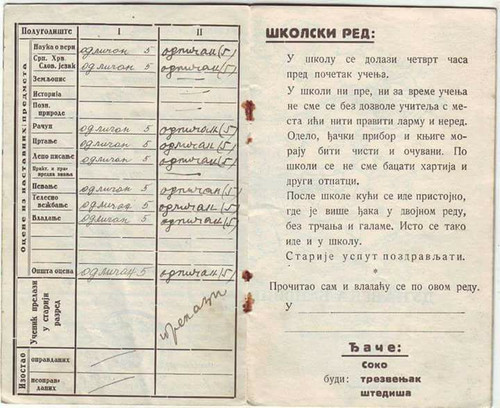 Полугодиште I II
Наука о вери одличан 5 одличан (5)
Срп. Хрв. Слов. језик одличан 5 одличан (5)
Земљопис
Историја
Позн. природе
Рачун одличан 5 одличан (5)
Цртање одличан 5 одличан (5)
Лепо писање одличан 5 одличан (5)
Певање одличан 5 одличан (5)
Телесно вежбање одличан 5 одличан (5)
Владање одличан 5 одличан (5)
Општа оцена одличан 5 одличан (5)
Оцене из наставних предмета
Ученик прелази у старији разред прелази
Изостао
оправданих
неоправданих
ШКОЛСКИ РЕД:
У школу се долази четврт часа
пред почетак учења.
У школи ни пре, ни за време учења
не сме се без дозволе учитеља с ме-
ста ићи нити правити ларму и неред.
Одело, ђачки прибор и књиге мо-
рају бити чисти и очувани. По
школи се не сме бацати хартија и
други отпатци.
После школе кући се иде пристојно,
где је више ђака у двојном реду,
без трчања и галаме. Исто се тако
иде и у школу.
Старије успут поздрављати.
*
Прочитао сам и владаћу се по овом реду.
У
Ђаче:
Соко
буди: трезвењак
штедиша